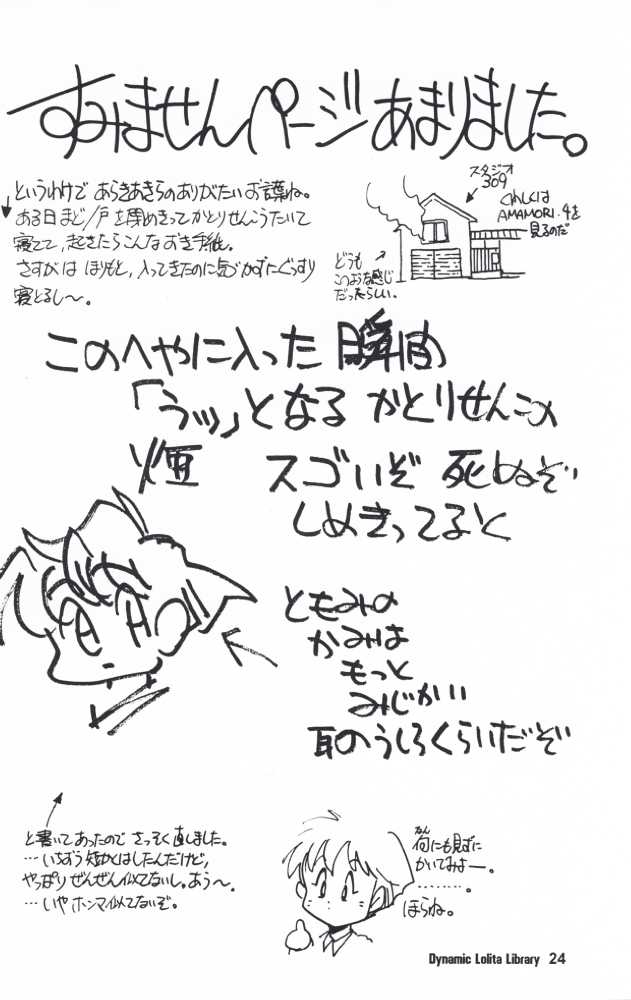 すみませんページあまりました。
というわけで あらきあきらのありがたいお葉ね。
ある日まど/戸を閉めきってかとりせんこうたいて
寝てて、起きたらこんなおき手紙。
さすがは ほりもと、入ってきたのに気づかずにぐっすり
寝とるし〜。
スタジオ
309
くわしくは
AMAMORI・4を
見るのだ
どうも
このような感じ
だったらしい。
このへやに入った 瞬間
「うッ」となる かとりせんこの
煙 スゴいぞ 死ぬぞ
しめきってると
ともみの
かみは
もっと
みじかい
耳のうしろくらいだぞ
と書いてあったので さっそく直しました。
…いちおう短かくはしたんだけど、
やっぱりぜんぜん似てないし。あう〜。
…いやホンマ似てないぞ。
なん
何にも見ずに
かいてみよー。
………。
ほらね。
Dynamic Lolita Library 24